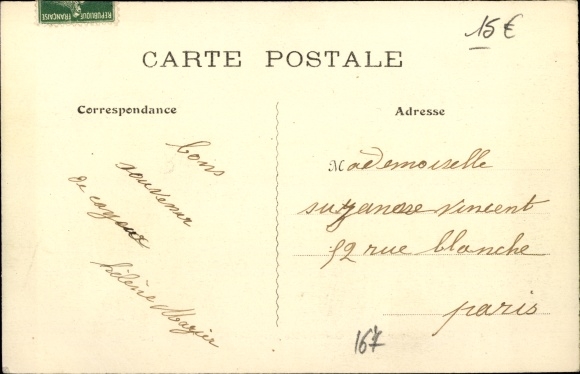 RÉPUBLIQUE FRANÇAISE
15 €
CARTE POSTALE
Correspondance
Adresse
bons
souvenir
de cayeux
hélène Mazier
Mademoiselle
suzanne vincent
52 rue blanche
paris
167